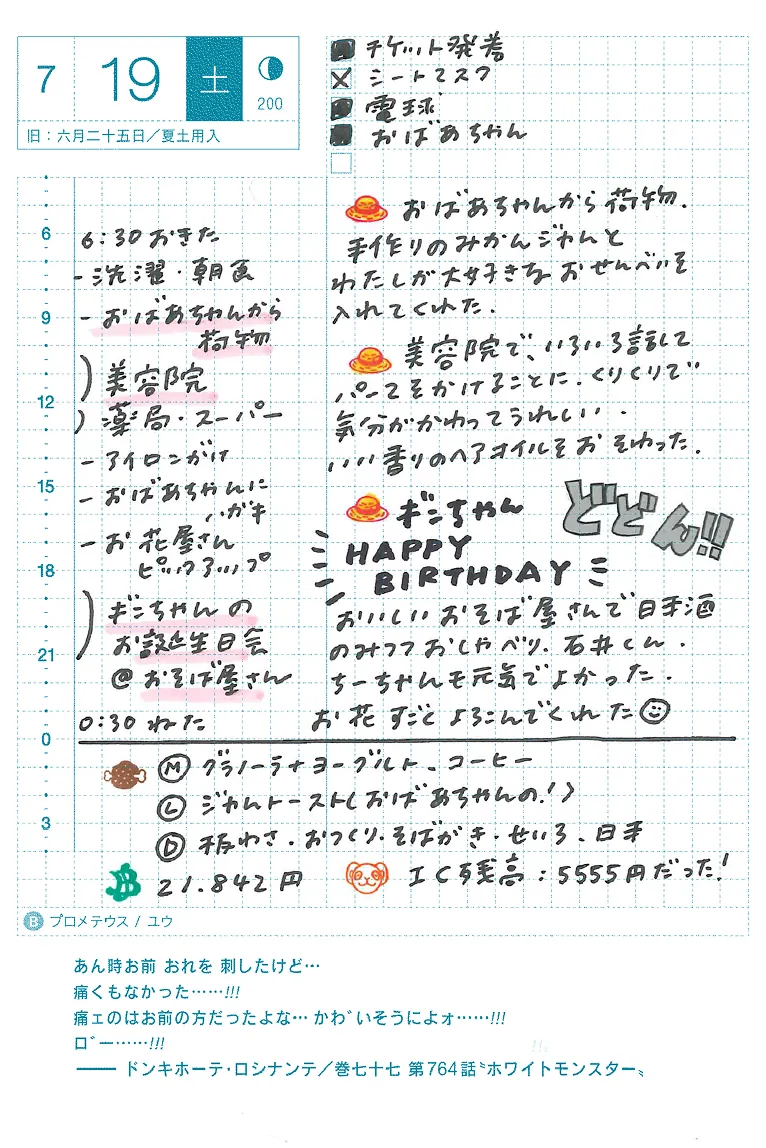 7 19 土
200
旧：六月二十五日／夏土用入
チケット発券
シートマスク
電球
おばあちゃん
6
9
12
15
18
21
0
3
6:30 おきた
- 洗濯・朝食
- おばあちゃんから
荷物
) 美容院
) 薬局・スーパー
- アイロンがけ
- おばあちゃんに
ハガキ
- お花屋さん
ピックアップ
) ギンちゃんの
お誕生日会
@ おそば屋さん
0:30 ねた
おばあちゃんから荷物．
手作りのみかんジャムと
わたしが大好きなおせんべいを
入れてくれた．
美容院で、いろいろ話して
パーマをかけることに．くりくりで
気分がかわってうれしい．
いい香りのヘアオイルをおそわった．
ギンちゃん
どどん!!
HAPPY
BIRTHDAY
おいしいおそば屋さんで日本酒
のみつつおしゃべり．石井くん．
ちーちゃんも元気でよかった．
お花すごくよろこんでくれた
M グラノーラ+ヨーグルト、コーヒー
L ジャムトースト(おばあちゃんの!)
D 板わさ．おつくり．そばがき．せいろ．日本
B 21.842円
IC残高：5555円だった!
B プロメテウス / ユウ
あん時お前 おれを 刺したけど…
痛くもなかった……!!!
痛ェのはお前の方だったよな… かわ゛いそうによォ……!!!
ロ゛ー……!!!
―― ドンキホーテ･ロシナンテ／巻七十七 第764話〝ホワイトモンスター〟